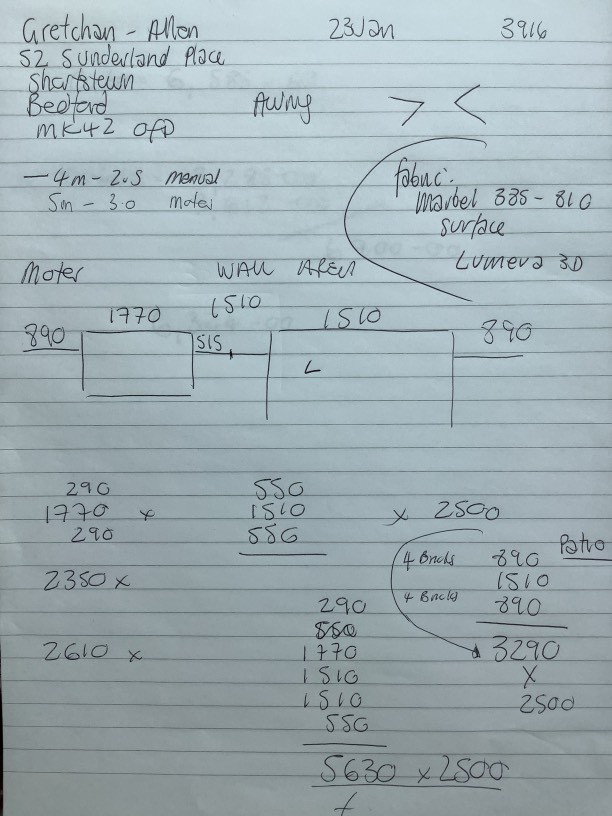 Gretchan - Allen 23 Jan 3916
52 Sunderland Place
Shortstown
Bedford Awning > <
MK42 0FD
- 4m - 2.5 manual fabric:
5m - 3.0 moter Marbel 335 - 810
surface
Lumera 3D
Moter WALL AREA
1510
890 1770 515 1510 890
L
290 550
1770 x 1510 x 2500
290 550
Patio
4 Bricks 890
1510
4 Bricks 890
2350 x
3290
x
2500
2610 x
290
550
1770
1510
1510
550
5630 x 2500